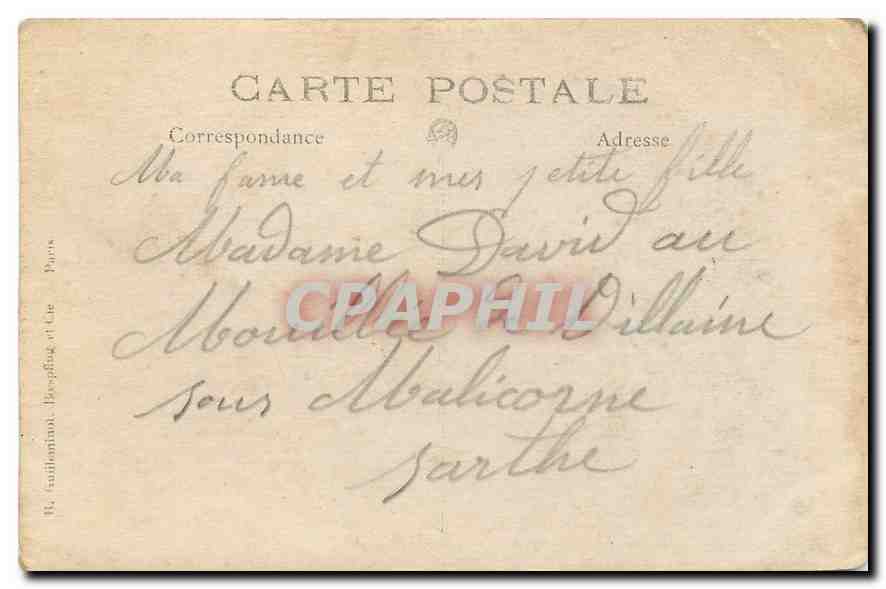 CARTE POSTALE
Correspondance Adresse
Ma fame et mes petite fille
Madame David au
Mouillée à Villaine
sous Malicorne
sarthe
R. Guilleminot, Bœspflug et Cie Paris
CPAPHIL